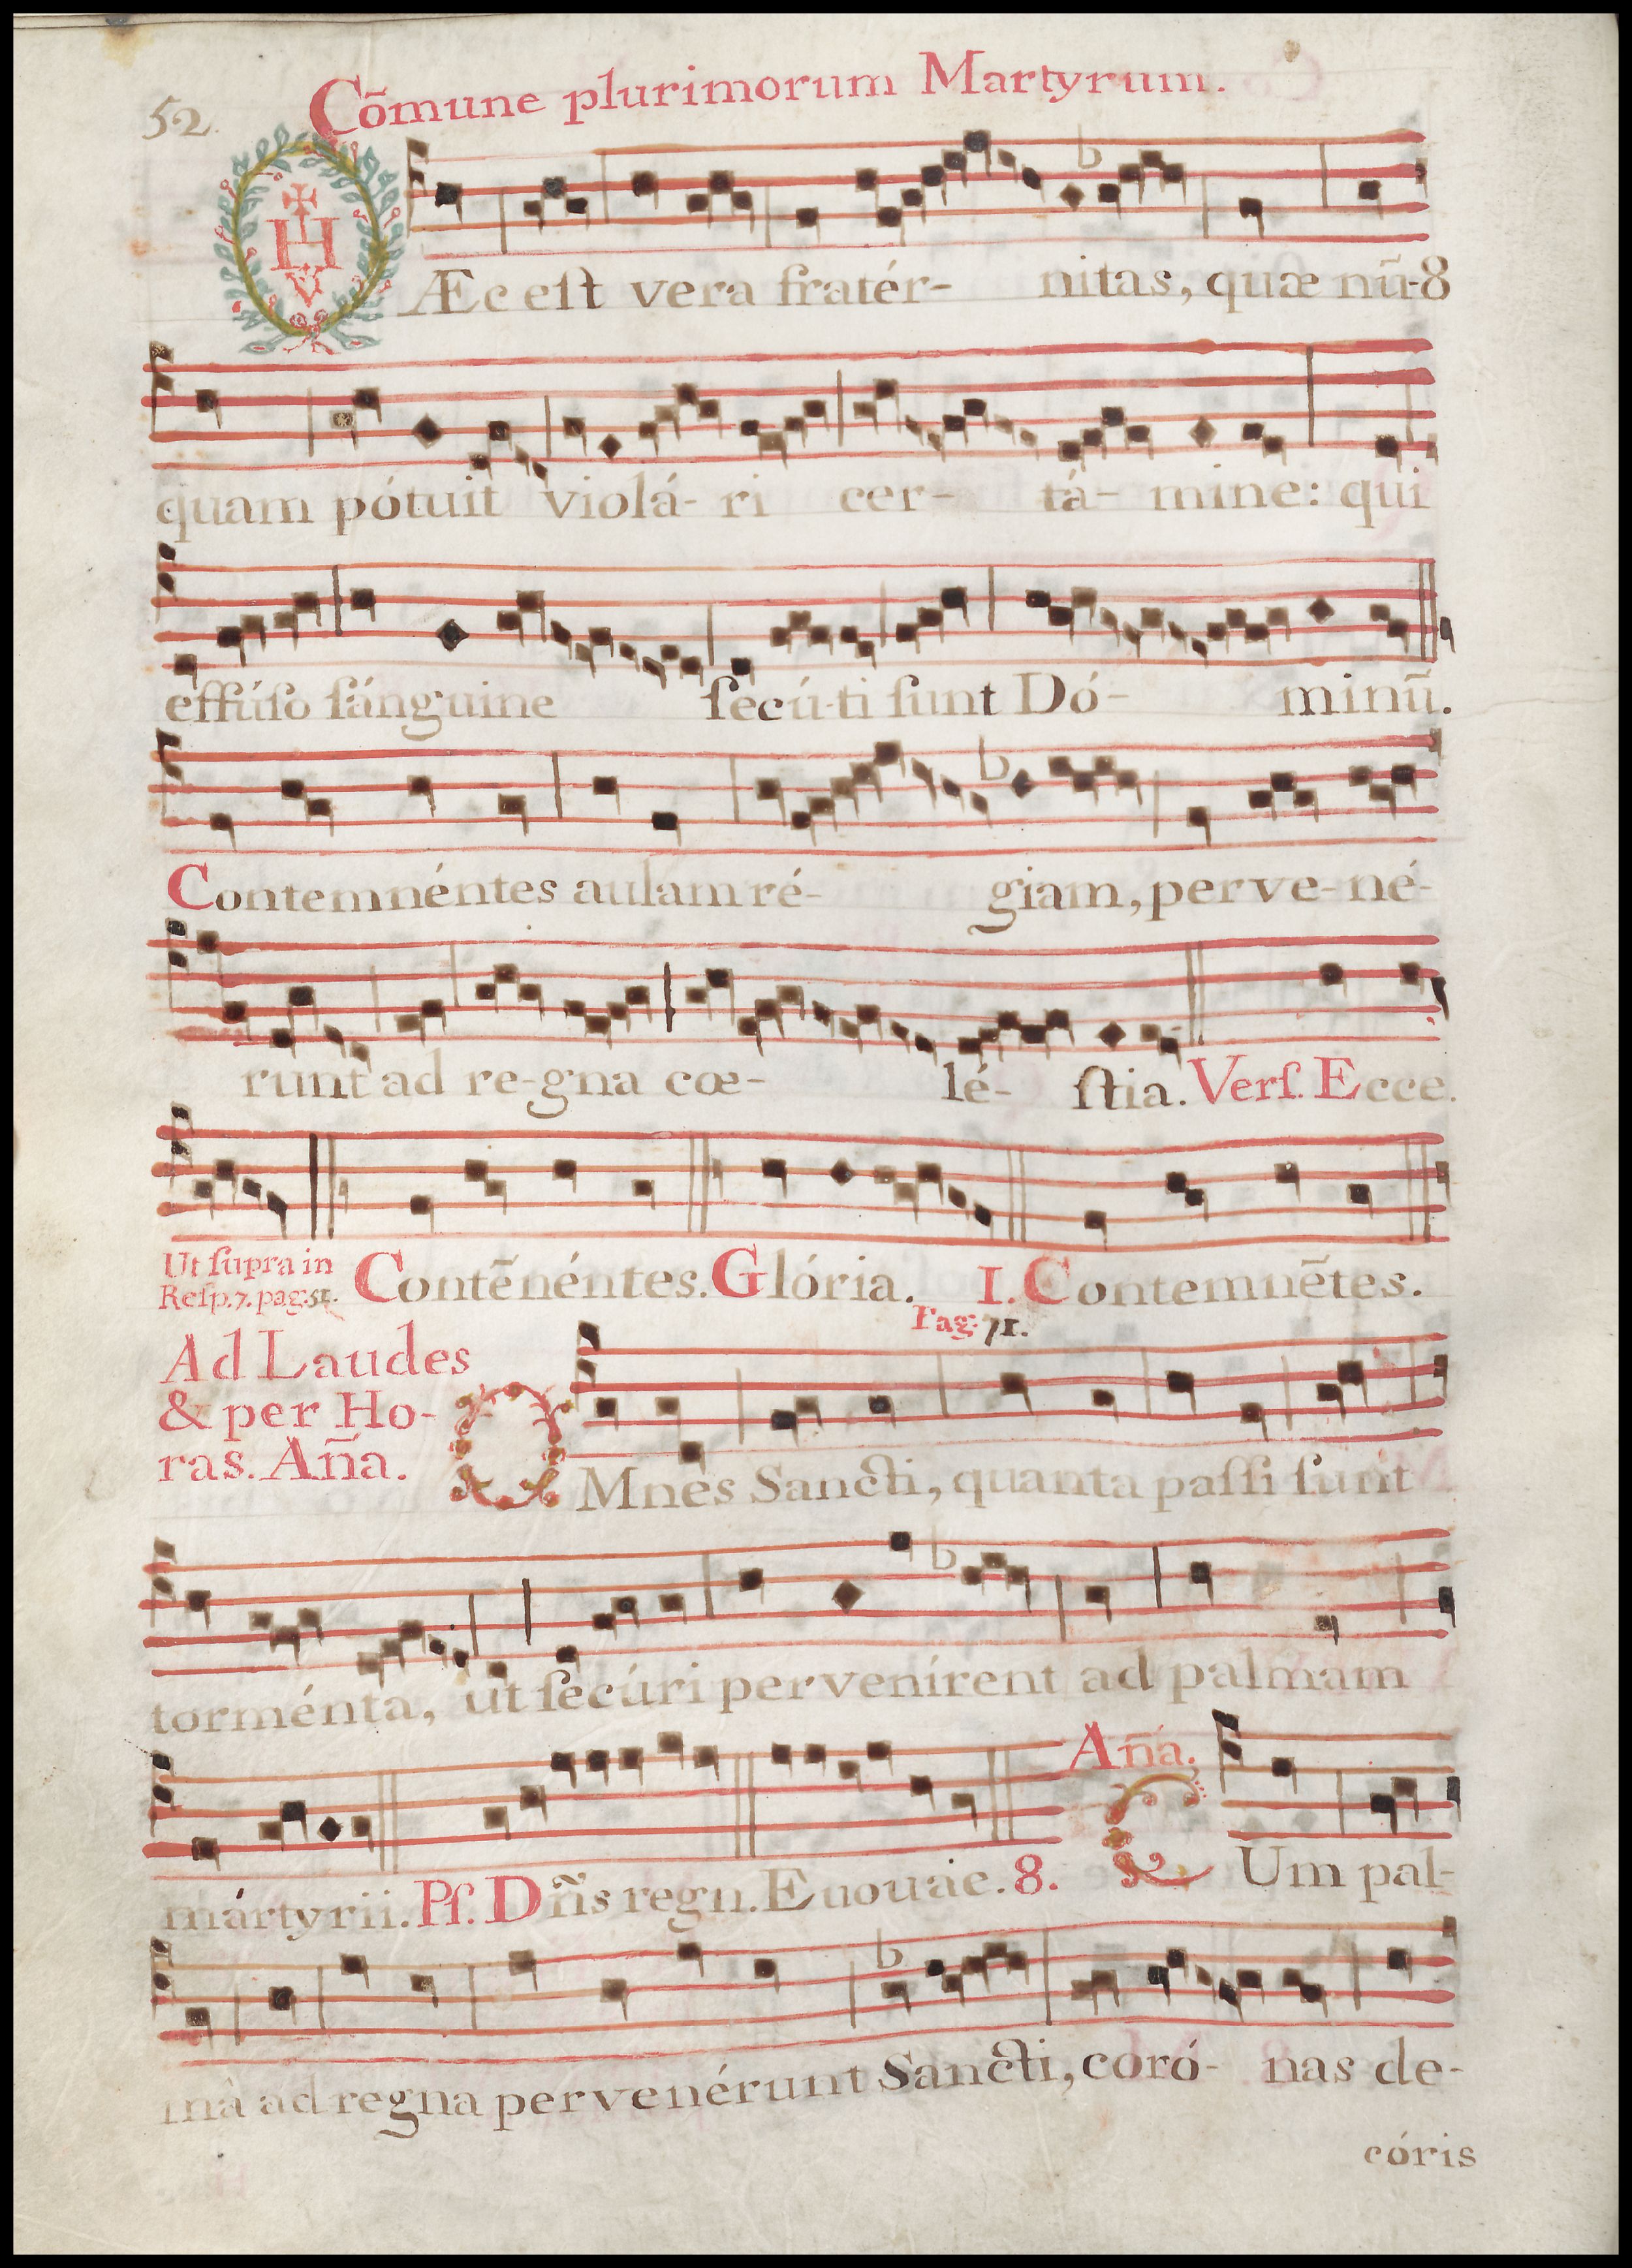 52. Cōmune plurimorum Martyrum.
HÆc eſt vera fratér- nitas, quæ nū- 8
quam pótuit violá- ri cer- tá- mine: qui
effúſo ſánguine ſecú-ti ſunt Dó- minū.
Contemnéntes aulam ré- giam, perve-né-
runt ad re-gna cœ- lé- ſtia. Verſ. Ecce.
Ut ſupra in
Reſp. 7. pag: 51. Contēnéntes. Glória. I. Contemnētes.
Pag: 71.
Ad Laudes
& per Ho-
ras. An̄a. OMnes Sancti, quanta paſſi ſunt
torménta, ut ſecúri pervenírent ad palmam
mártyrii. Pſ. Dn̄s regn. Euouae. 8. An̄a. CUm pal-
mâ ad regna pervenérunt Sancti, coró- nas de-
córis